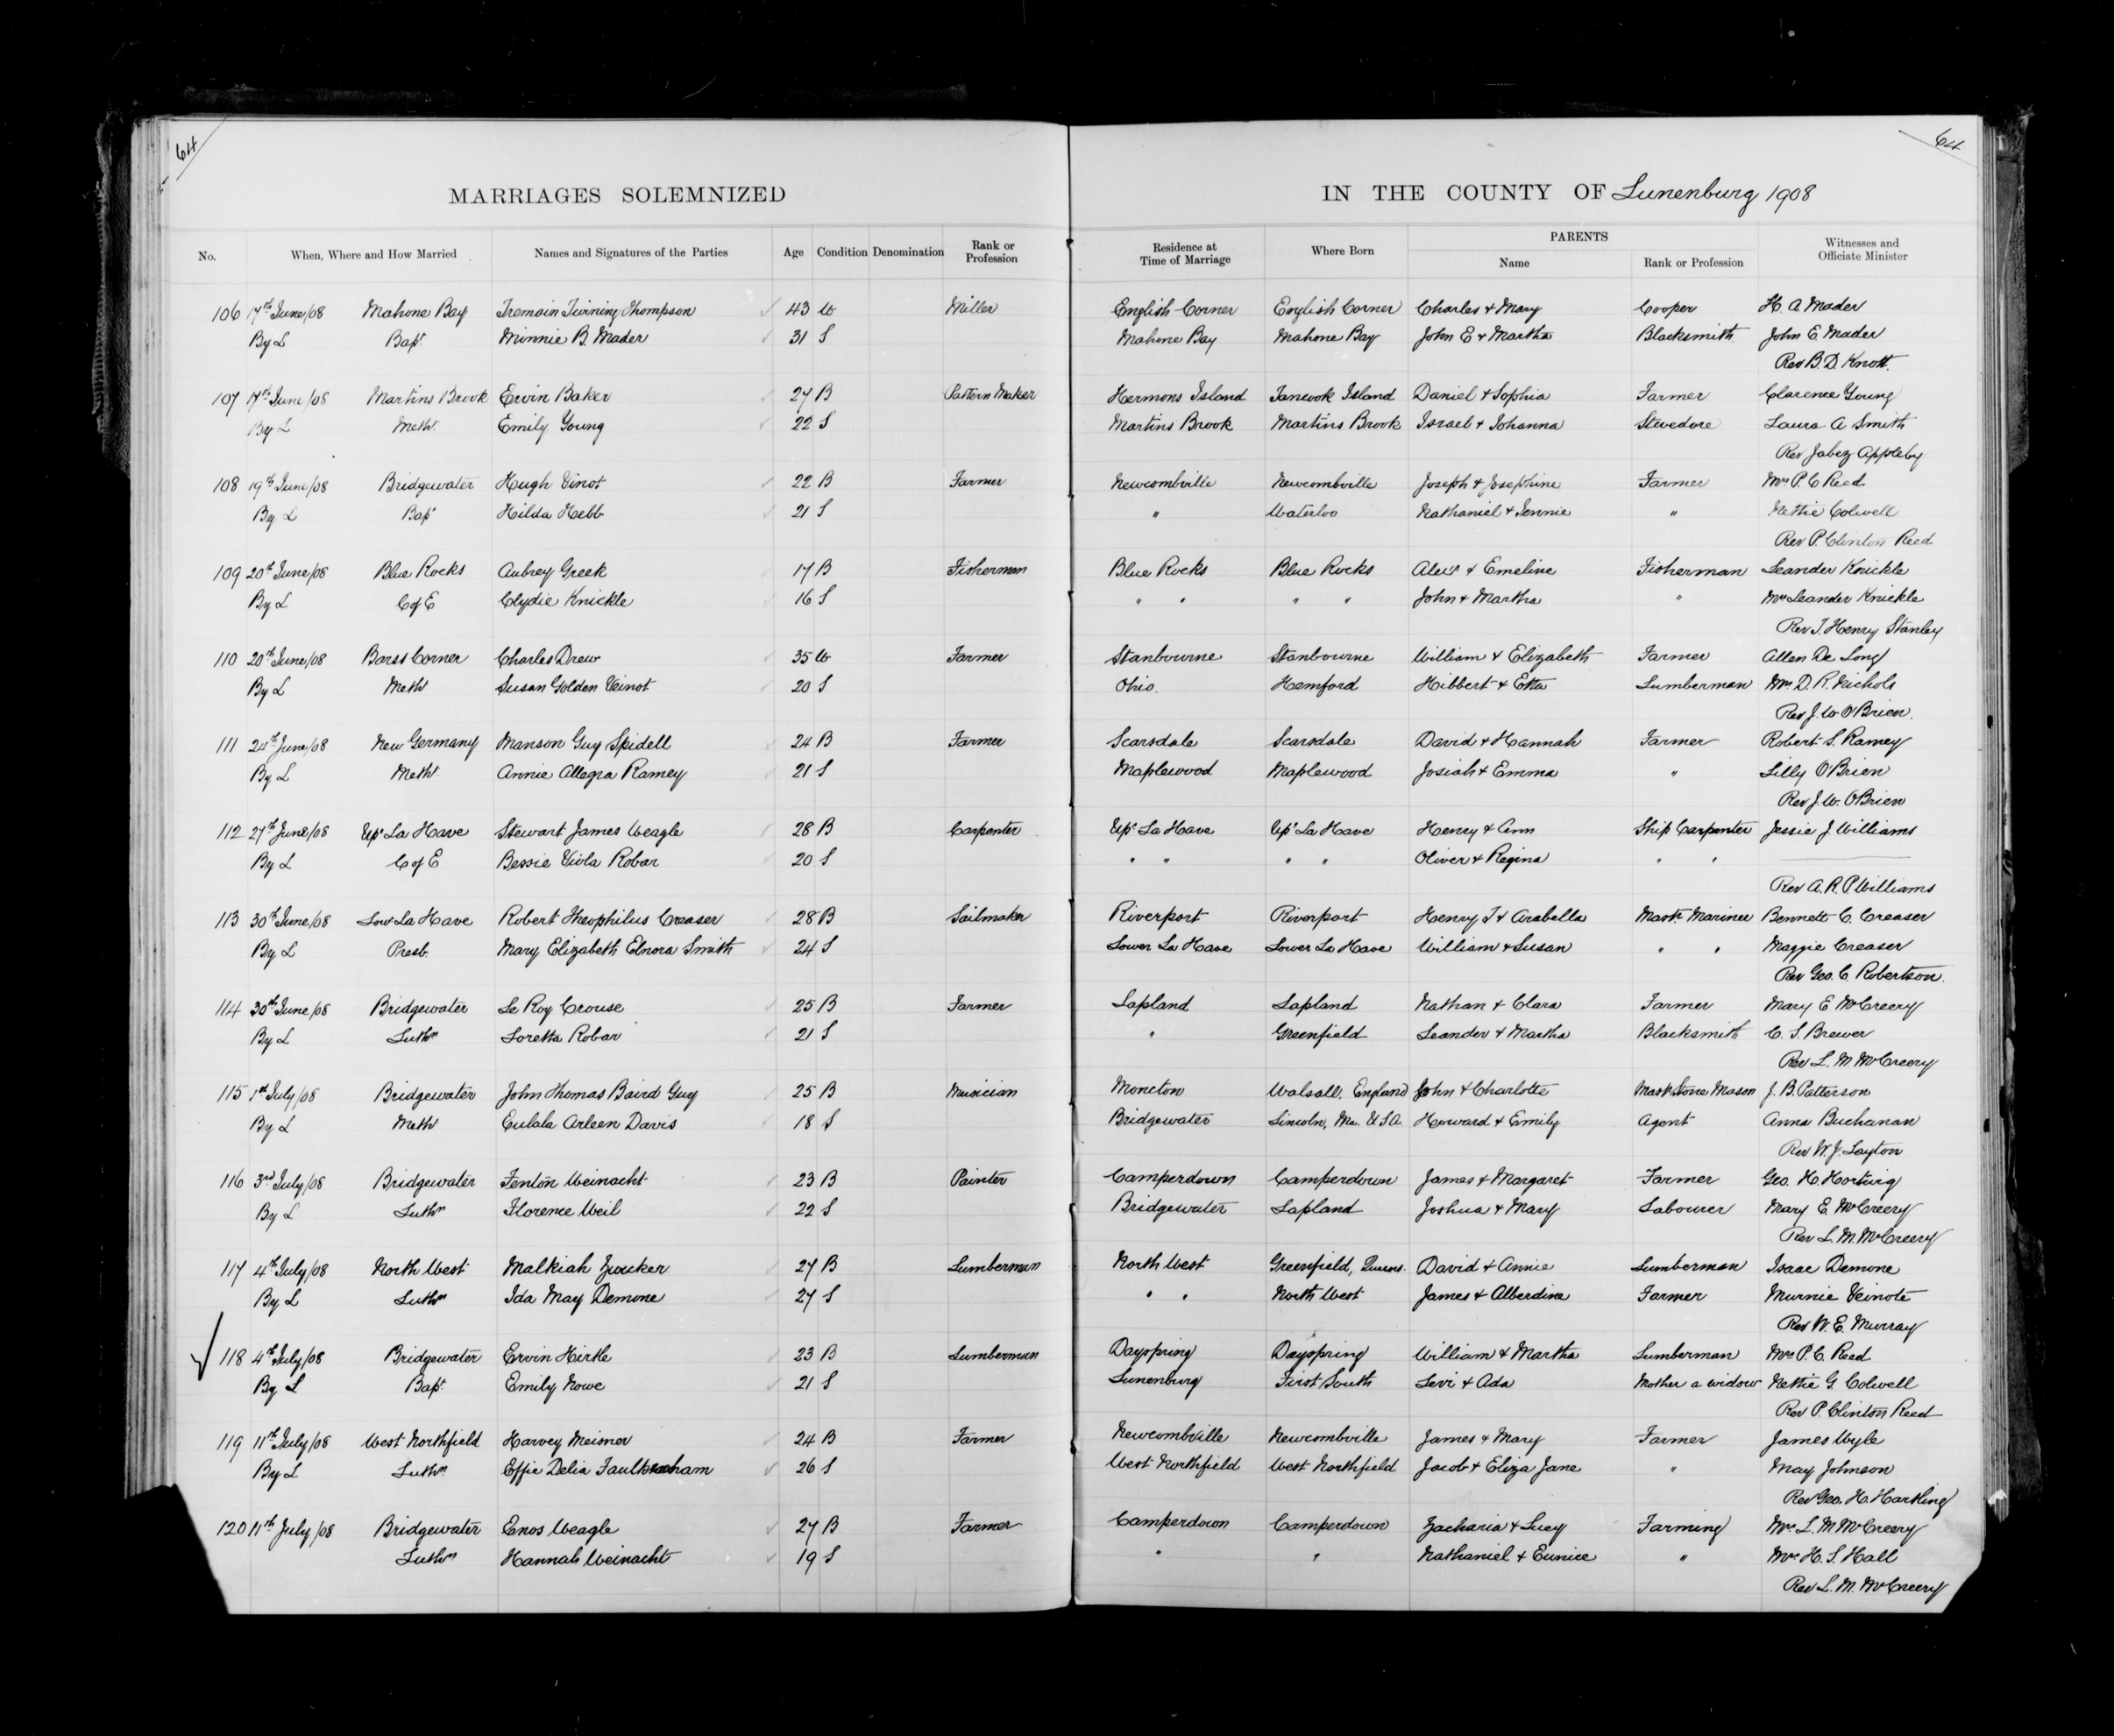 64
64
MARRIAGES SOLEMNIZED IN THE COUNTY OF Lunenburg 1908
No. When, Where and How Married Names and Signatures of the Parties Age Condition Denomination Rank or Profession Residence at Time of Marriage Where Born PARENTS Name Rank or Profession Witnesses and Officiate Minister
106 17th June/08 Mahone Bay Tremain Twining Thompson 43 W Miller English Corner English Corner Charles & Mary Cooper H. A Mader
By L Bapt Minnie B. Mader 31 S Mahone Bay Mahone Bay John E & Martha Blacksmith John E. Mader
Rev B. D. Knott.
107 17th June/08 Martins Brook Ervin Baker 27 B Pattern Maker Hermons Island Tancook Island Daniel & Sophia Farmer Clarence Young
By L Meth. Emily Young 22 S Martins Brook Martins Brook Israel & Johanna Stevedore Laura A Smith
Rev Jabez Appleby
108 19th June/08 Bridgewater Hugh Vinot 22 B Farmer Newcombville Newcombville Joseph & Josephine Farmer Mrs P C Reed
By L Bapt Hilda Hebb 21 S " Waterloo Nathaniel & Jennie " Nettie Colwell
Rev P. Clinton Reed
109 20th June/08 Blue Rocks Aubrey Greek 17 B Fisherman Blue Rocks Blue Rocks Alexr & Emeline Fisherman Leander Knickle
By L C of E Clydie Knickle 16 S " " " " John & Martha " Mrs Leander Knickle
Rev T. Henry Stanley
110 20th June/08 Barss Corner Charles Drew 35 W Farmer Stanbourne Stanbourne William & Elizabeth Farmer Allen De Long
By L Meth Susan Golden Veinot 20 S Ohio. Hemford Hibbert & Etta Lumberman Mrs D. R. Nichols
Rev J. W O'Brien.
111 24th June/08 New Germany Manson Guy Spidell 24 B Farmer Scarsdale Scarsdale David & Hannah Farmer Robert S. Ramey
By L Meth Annie Allegra Ramey 21 S Maplewood Maplewood Josiah & Emma " Lilly O'Brien
Rev J. W. O'Brien
112 27th June/08 Upr La Have Stewart James Weagle 28 B Carpenter Upr La Have Upr La Have Henry & Ann Ship Carpenter Jessie J Williams
By L C of E Bessie Viola Robar 20 S " " " " Oliver & Regina " "
Rev A. R. P. Williams
113 30th June/08 Low La Have Robert Theophilus Creaser 28 B Sailmaker Riverport Riverport Henry T & Arabella Mastr Marinee Bennett C. Creaser
By L Presb. Mary Elizabeth Elnora Smith 24 S Lower La Have Lower La Have William & Susan " " Maggie Creaser
Rev Geo. C Robertson.
114 30th June/08 Bridgewater Le Roy Crouse 25 B Farmer Lapland Lapland Nathan & Clara Farmer Mary E McCreery
By L Luthn Loretta Robar 21 S " Greenfield Leander & Martha Blacksmith C. S. Brewer
Rev L. M McCreery
115 1st July/08 Bridgewater John Thomas Baird Guy 25 B Musician Moncton Walsall, England John & Charlotte Mastr Stone Mason J. B. Patterson
By L Meth Eulala Arleen Davis 18 S Bridgewater Lincoln, Me. U S A. Howard & Emily Agent Anna Buchanan
Rev W. J. Layton
116 3rd July/08 Bridgewater Fenton Weinacht 23 B Painter Camperdown Camperdown James & Margaret Farmer Geo. H. Hortwig
By L Luthn Florence Weil 22 S Bridgewater Lapland Joshua & Mary Labourer Mary E. McCreery
Rev L. M. McCreery
117 4th July/08 North West Malkiah Zwicker 27 B Lumberman North West Greenfield, Queens. David & Annie Lumberman Isaac Demone
By L Luthn Ida May Demone 27 S " " North West James & Alberdina Farmer Murnie Veinote
Rev W. E. Murray
118 4th July/08 Bridgewater Ervin Hirtle 23 B Lumberman Dayspring Dayspring William & Martha Lumberman Mrs P. C. Reed
By L Bapt Emily Nowe 21 S Lunenburg First South Levi & Ada Mother a widow Nettie G. Colwell
Rev P. Clinton Reed
119 11th July/08 West Northfield Harvey Meisner 24 B Farmer Newcombville Newcombville James & Mary Farmer James Wyle
By L Luthn Effie Delia 26 S West Northfield West Northfield Jacob & Eliza Jane " May Johnson
Rev Geo. H. Hartling
120 11th July/08 Bridgewater Enos Weagle 27 B Farmer Camperdown Camperdown Zacharia & Lucy Farming Mrs L. M McCreery
Luthn Hannah Weinacht 19 S " " Nathaniel & Eunice " Mrs H. S. Hall
Rev L. M. McCreery